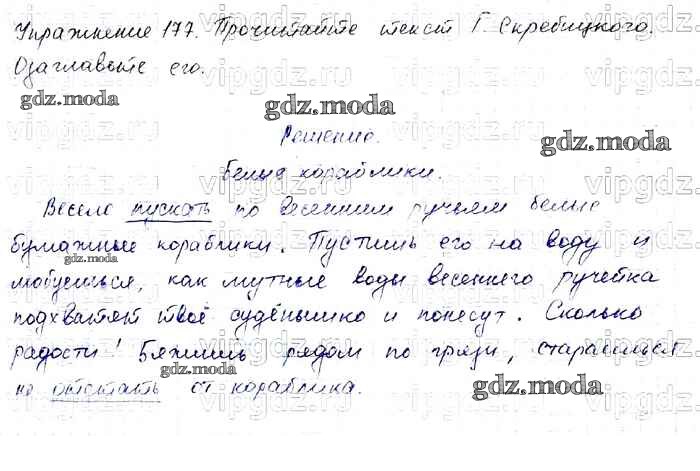 Упражнение 177. Прочитайте текст Г. Скребицкого.
Озаглавьте его.
gdz.moda
gdz.moda
gdz.moda
Решение.
Белые кораблики.
Весело пускать по весенним ручьям белые
бумажные кораблики. Пустишь его на воду и
gdz.moda
любуешься, как мутные воды весеннего ручейка
подхватят твоё судёнышко и понесут. Сколько
радости! Бежишь рядом по грязи, стараешься
не отстать от кораблика.
gdz.moda
gdz.moda
vipgdz.ru